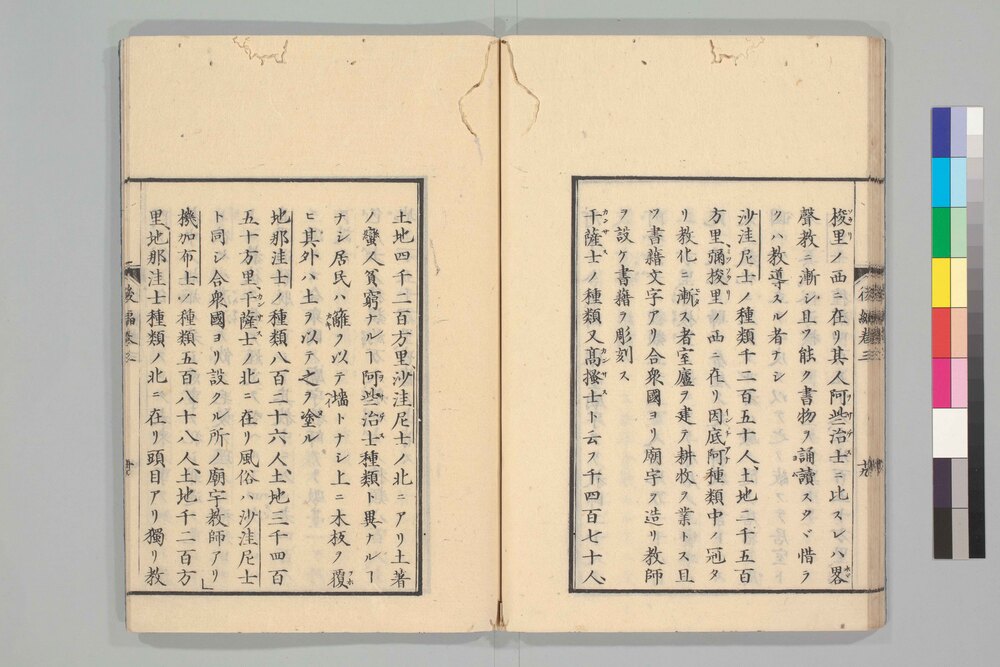 梭里ノ西ニ在リ其人阿些治士ニ比スレハ畧
聲教ニ漸シ且ツ能ク書物ヲ誦讀スタヾ惜ラ
クハ教導スル者ナシ
沙洼尼士ノ種類千二百五十人土地二千五百
方里彌梭里ノ西ニ在リ因底阿種類中ノ冠タ
リ教化ニ漸ス者室廬ヲ建テ耕牧ヲ業トス且
ツ書籍文字アリ合衆國ヨリ廟宇ヲ造リ教師
ヲ設ケ書籍ヲ彫刻ス
干薩士ノ種類又髙搔士ト云フ千四百七十人
土地四千二百方里沙洼尼士ノ北ニアリ土著
ノ蠻人貧窮ナルヿ阿些治士種類ト異ナルヿ
ナシ居民ハ籬ヲ以テ墻トナシ上ニ木板ヲ覆
ヒ其外ハ土ヲ以テ之ヲ塗ル
地那洼士ノ種類八百二十六人土地三千四百
五十方里干薩士ノ北ニ在リ風俗ハ沙洼尼士
ト同シ合衆國ヨリ設クル所ノ廟宇教師アリ
機加布士ノ種類五百八十八人土地千二百方
里地那洼士種類ノ北ニ在リ頭目アリ獨リ教